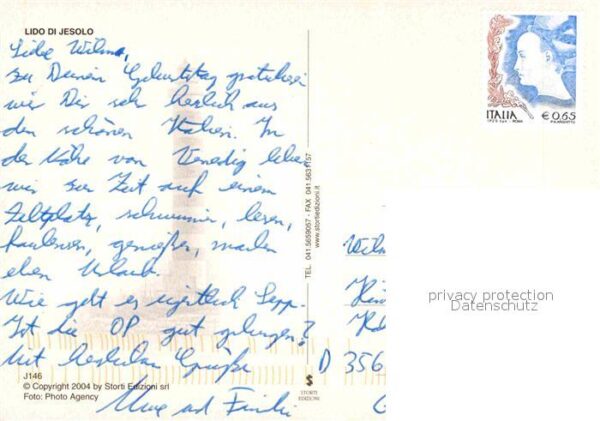 LIDO DI JESOLO
Liebe Wilma,
zu Deinem Geburtstag gratulieren
wir Dir sehr herzlich aus
dem schönen Italien. In
der Nähe von Venedig leben
wir zur Zeit auf einem
Zeltplatz, schwimmen, lesen,
faulenzen, genießen, machen
eben Urlaub.
Wie geht es eigentlich Sepp.
Ist die OP gut gelungen?
Mit herzlichen Grüße
Uwe und
J146
© Copyright 2004 by Storti Edizioni srl
Foto: Photo Agency
TEL. 041.5659057 - FAX 041.5631157
www.stortiedizioni.it
S
STORTI
EDIZIONI
ITALIA
€ 0,65
Wilm
D 356
privacy protection
Datenschutz